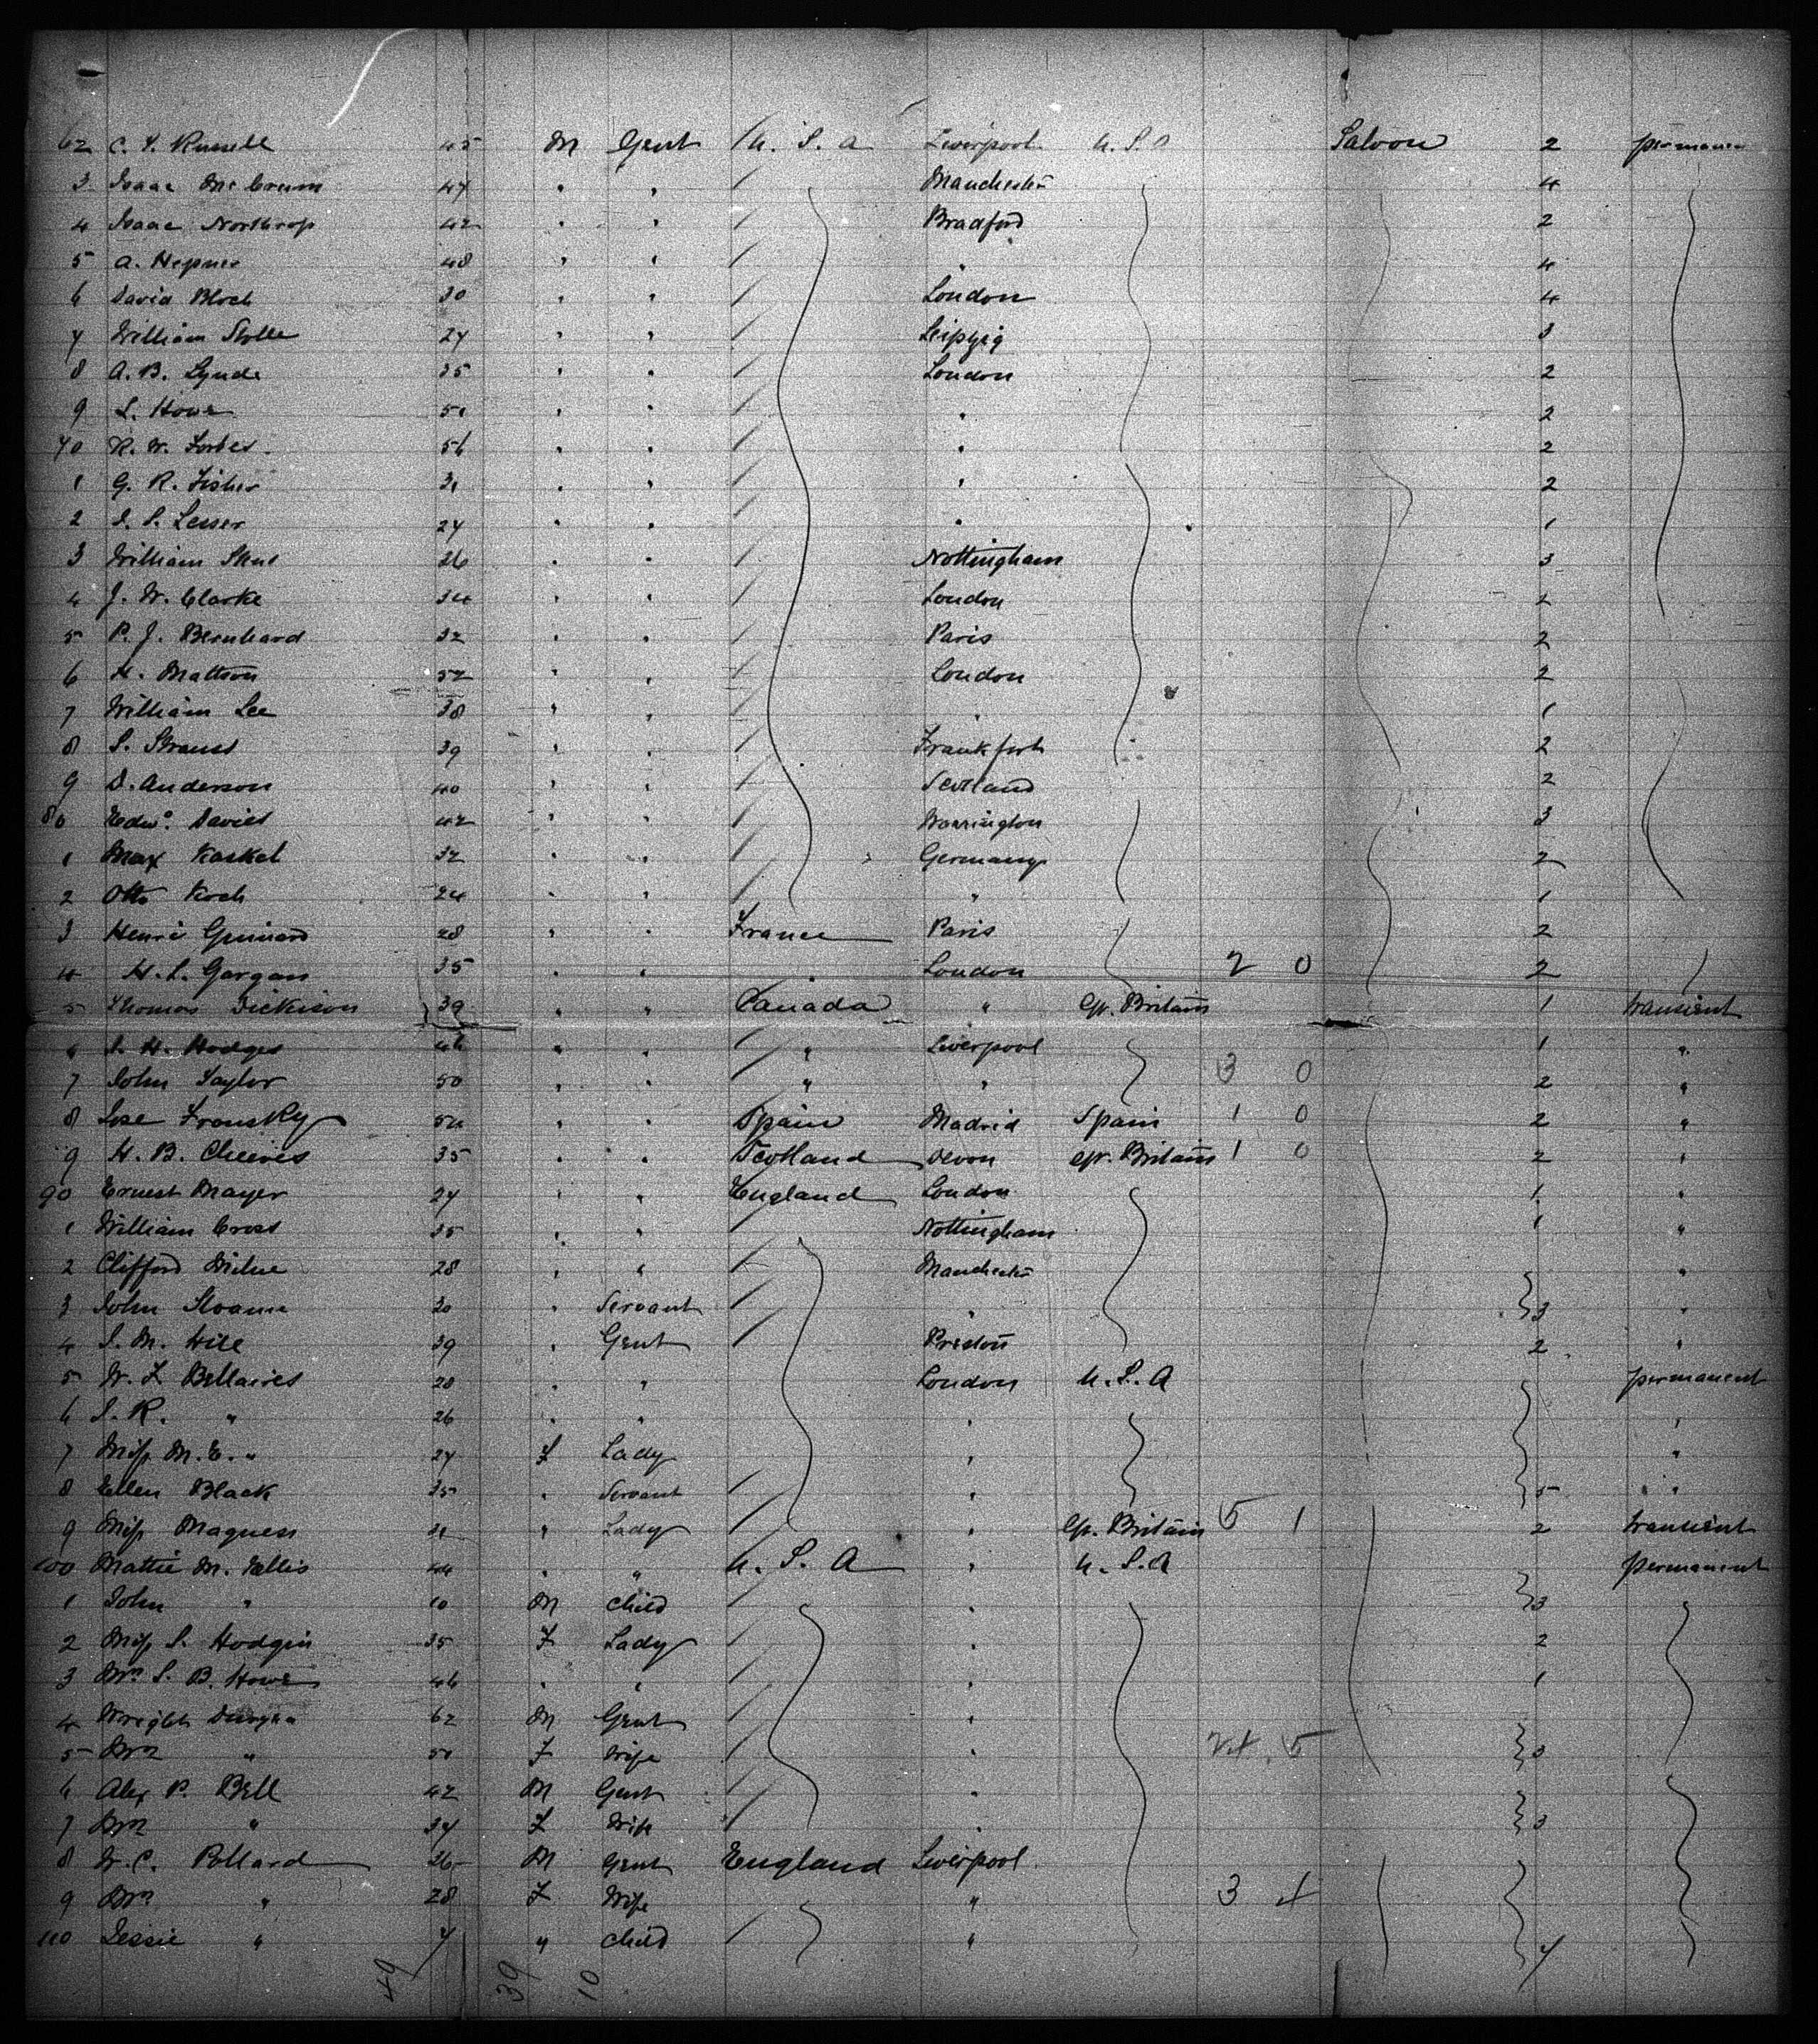 62 C. T. Russell 45 M Gent U. S. A Liverpool U. S. A Saloon 2 permanen
3 Isaac McCrum 47 " " Manchester 4
4 Isaac Northrop 42 " " Bradford 2
5 A. Hepner 48 " " " 4
6 David Bloch 30 " " London 4
7 William Stolle 27 " " Leipzig 3
8 A. B. Lynde 35 " " London 2
9 S. Howe 51 " " " 2
70 R. W. Forbes 56 " " " 2
1 G. R. Fisher 31 " " " 2
2 I. S. Lesser 27 " " " 1
3 William 26 " " Nottingham 3
4 J. W. Clarke 34 " " London 2
5 P. J. Bernhard 32 " " Paris 2
6 H. Mattson 52 " " London 2
7 William Lee 38 " " " 1
8 S. Strauss 39 " " Frankfort 2
9 D. Anderson 40 " " Scotland 2
80 Edwd. Davies 42 " " Warrington 3
1 Max Kaskel 32 " " Germany 2
2 Otto Koch 24 " " " 1
3 Henri 28 " " France Paris 2
4 H. L. Gargan 35 " " " London 2 0 2
5 Thomas Dickison 39 " " Canada " Gr. Britain 1 transient
6 S. H. Hodges 46 " " " Liverpool 1 "
7 John Taylor 50 " " " " 3 0 2 "
8 Jose Fronsky 54 " " Spain Madrid Spain 1 0 2 "
9 H. B. Cheeves 35 " " Scotland Devon Gr. Britain 1 0 2 "
90 Ernest Mayer 27 " " England London 1 "
1 William Cross 35 " " Nottingham 1 "
2 Clifford Milne 28 " " Manchester "
3 John Sloane 30 " Servant " 3 "
4 S. M. Hill 39 " Gent Preston 2 "
5 W. F. Bellaires 28 " " London U. S. A permanent
6 S. R. " 26 " " " "
7 Miss M. E. " 27 F Lady " "
8 Ellen Black 35 " Servant " 5 "
9 Miss Magness 31 " Lady " Gr. Britain 5 1 2 transient
100 Mattie M. Ellis 44 " " U. S. A " U. S. A permanent
1 John " 10 M child " 3
2 Miss S. Hodgin 35 F Lady " 2
3 Mrs S. B. Howe 46 " " " 1
4 Wright Duryea 62 M Gent "
5 Mrs " 51 F Wife " 24 5 3
6 Alex P. Bell 42 M Gent "
7 Mrs " 37 F Wife " 3
8 W. C. Pollard 26 M Gent England Liverpool
9 Mrs " 28 F Wife " 3 4
110 Jessie " 7 " child " 7
49 39 10